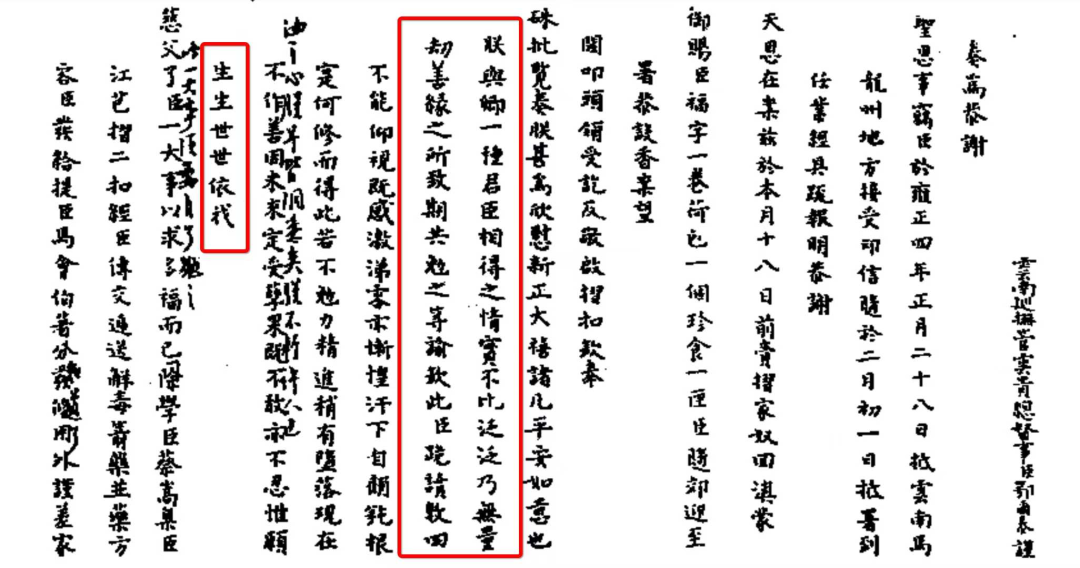 雲南巡撫管雲貴總督事臣鄂爾泰謹
奏爲恭謝
聖恩事竊臣於雍正四年正月二十八日抵雲南馬
龍州地方接受印信隨於二月初一日抵署到
任業經具疏報明恭謝
天恩在案茲於本月十八日前賫摺家奴回滇蒙
御賜臣福字一卷荷包一個珍食一匣臣隨郊迎至
署恭設香案望
闕叩頭領受訖及敬啟摺扣欽奉
硃批覽奏朕甚爲欣慰新正大禧諸凡平安如意也
朕與卿一種君臣相得之情實不比泛泛乃無量
劫善緣之所致期共勉之等諭欽此臣跪讀數回
不能仰視既感激涕零亦慚惶汗下自顧鈍根
寔何修而得此若不勉力精進稍有墮落現在
不作善因未來定受孽果既不敢亦不忍惟願
生生世世依我
慈父了臣一大事以求多福而已除學臣蔡嵩奏臣
江芑摺二扣經臣傳交遞送解毒箭藥並藥方
容臣發給提臣馬會伯等分發備用外謹差家